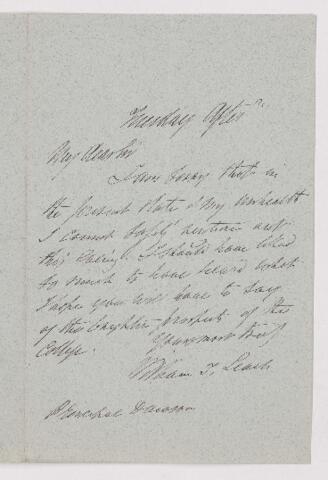 Tuesday Aftn
My dear Sir
I am sorry that in
the present state of my health
I cannot safely venture out
this Evening. I should have liked
so much to have heard what
I hope you will have to say
of the brighter prospects of the
College.
Yours most truly
William T. Leach
Principal Dawson